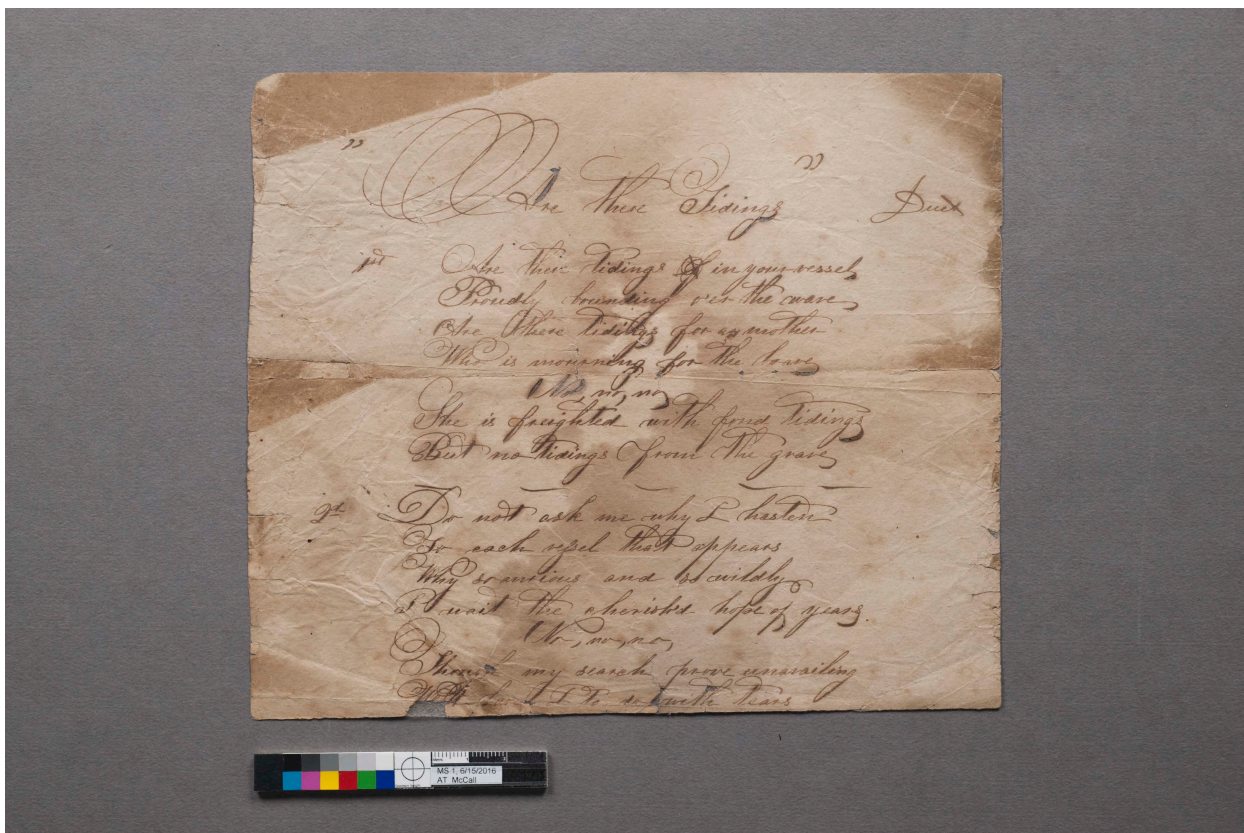 " Are there Tidings " Duet
1st Are their tidings in your vessel
Proudly bounding o'er the wave
Are there tidings for a mother
Who is mourning for the brave
No, no, no,
She is freighted with fond tidings
But no tidings from the grave
2d Do not ask me why I hasten
To each vessel that appears
Why so anxious and so wildly
I wait the cherish'd hope of years.
No, no, no,
Though my search prove unavailing
I with tears
MS 1, 6/15/2016
AT McCall